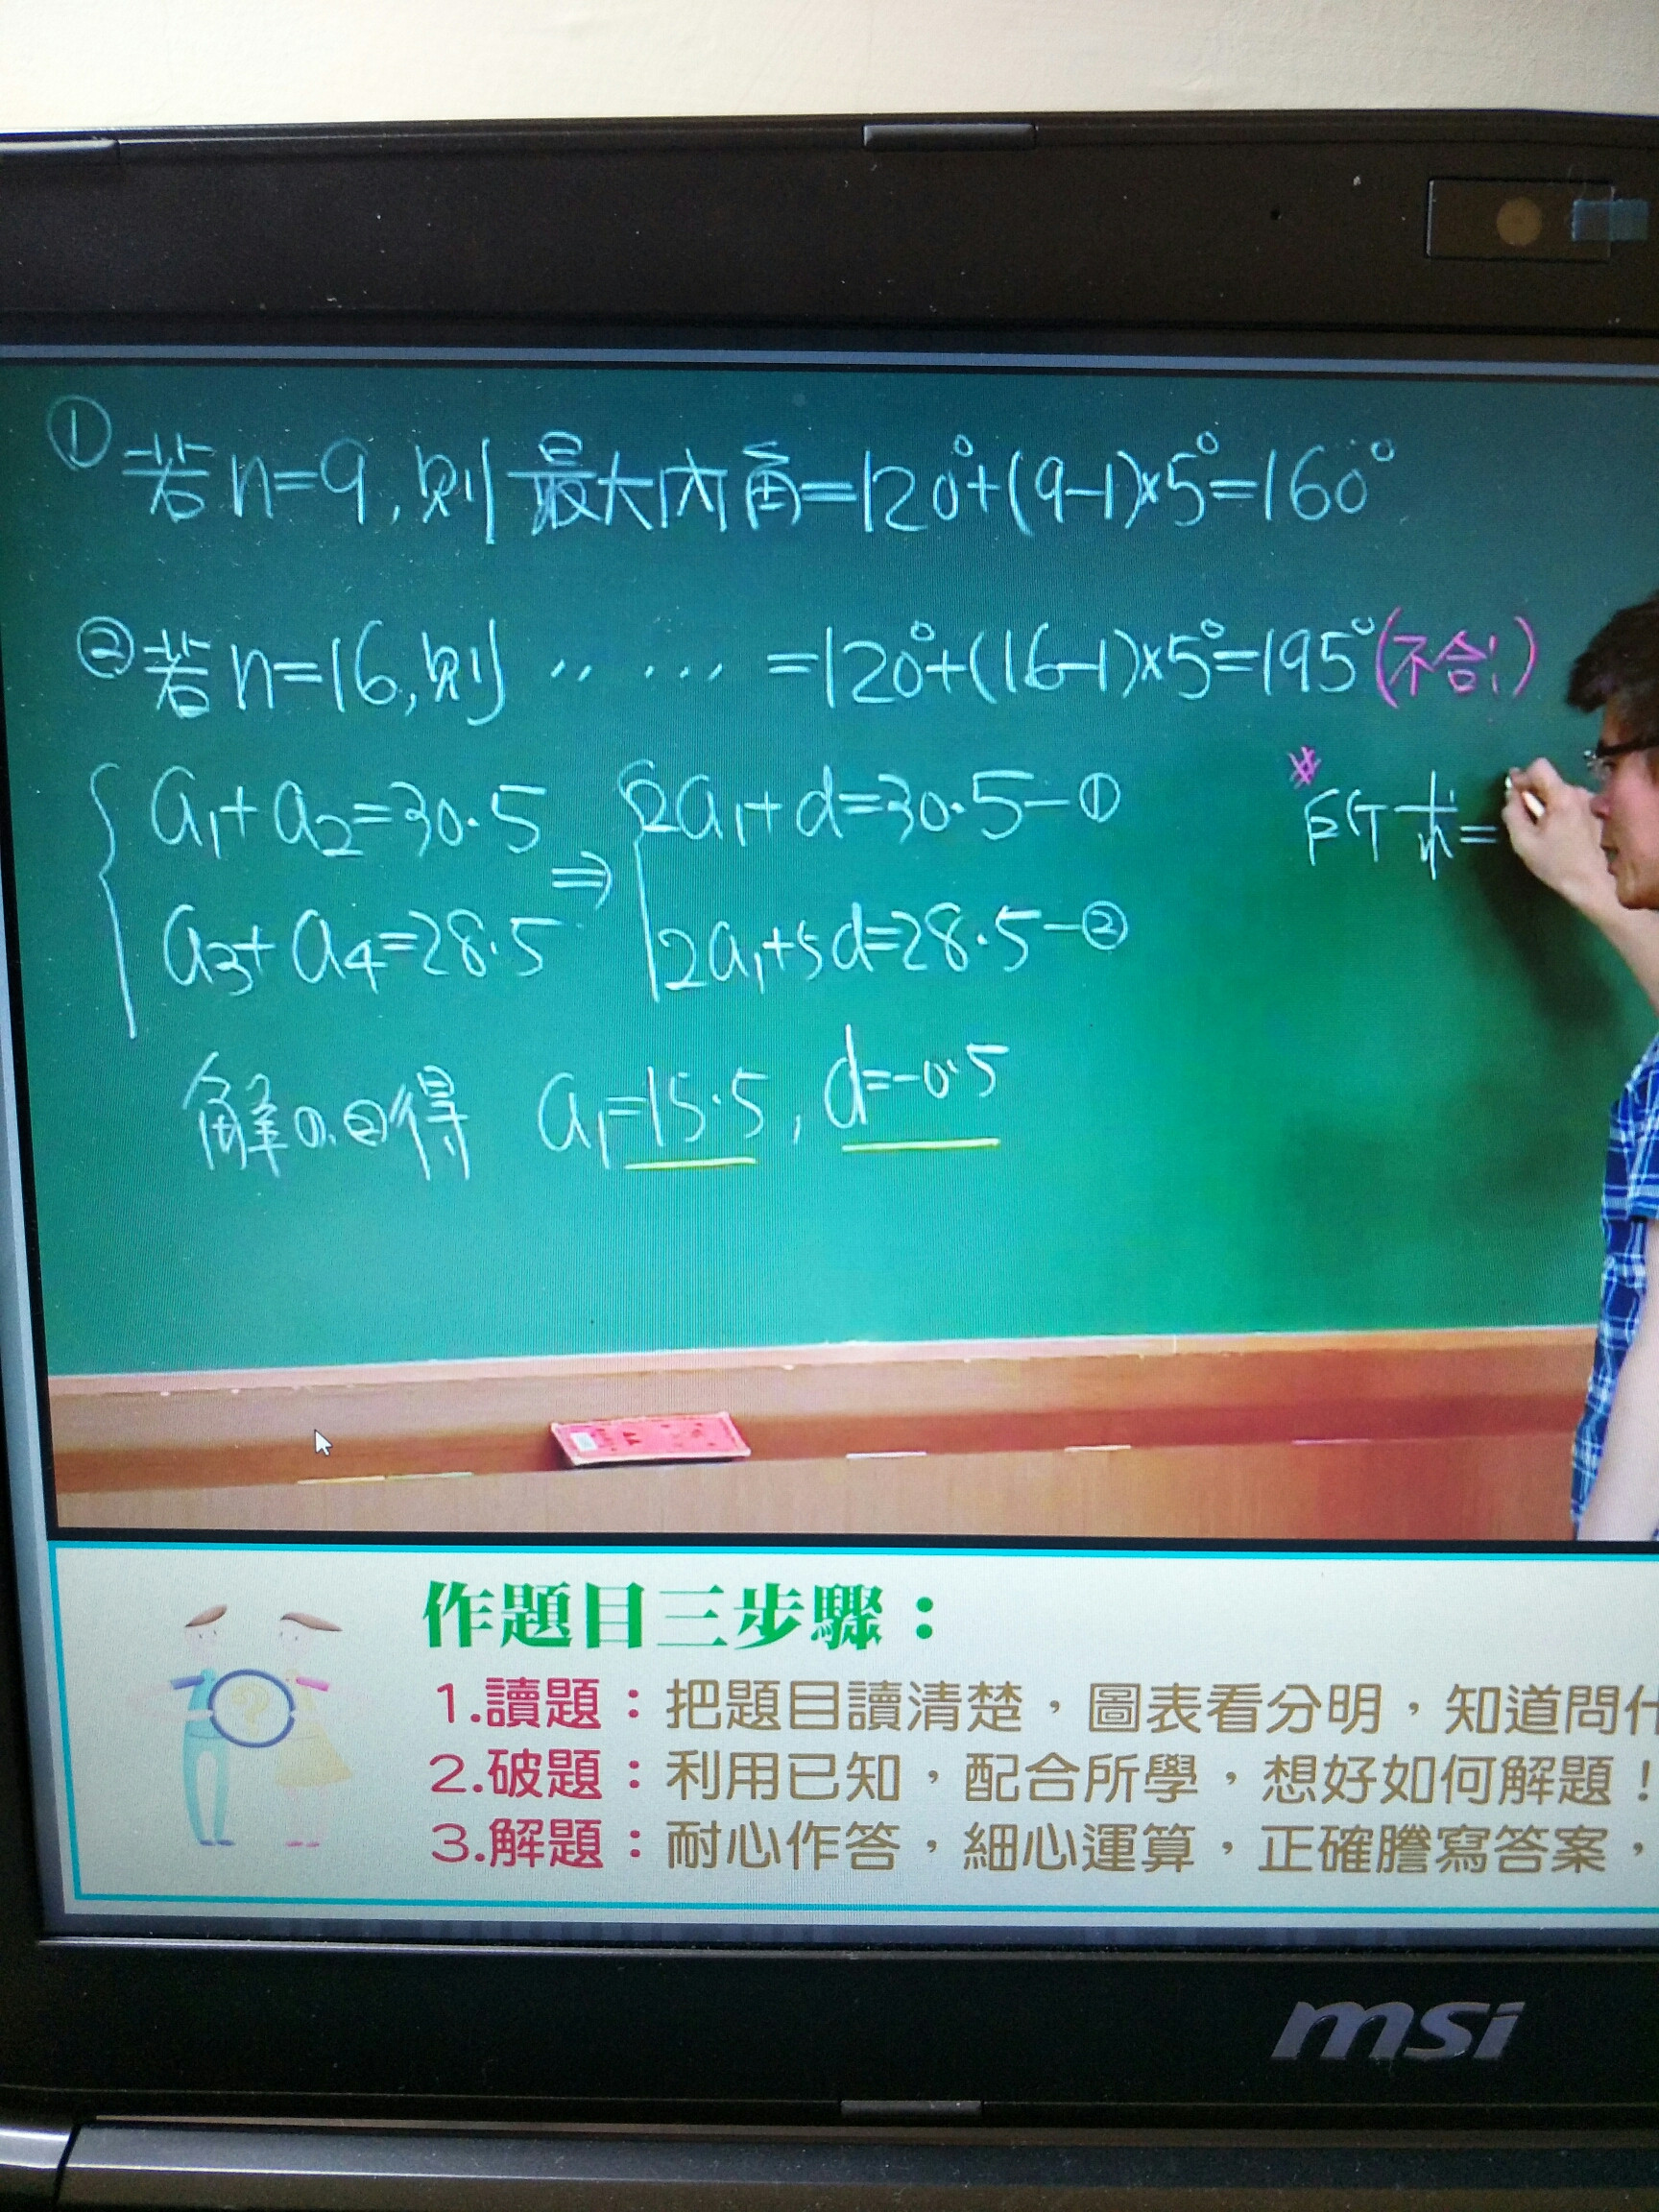 ① 若n=9,則最大內角=120°+(9-1)×5°=160°
② 若n=16,則 ‥ … =120°+(16-1)×5°=195°(不合!)
a₁+a₂=30.5 ⇒ 2a₁+d=30.5-①
a₃+a₄=28.5 2a₁+5d=28.5-②
※所求=
解①.②得 a₁=15.5, d=-0.5
作題目三步驟：
1.讀題：把題目讀清楚，圖表看分明，知道問什
2.破題：利用已知，配合所學，想好如何解題！
3.解題：耐心作答，細心運算，正確謄寫答案，
msi